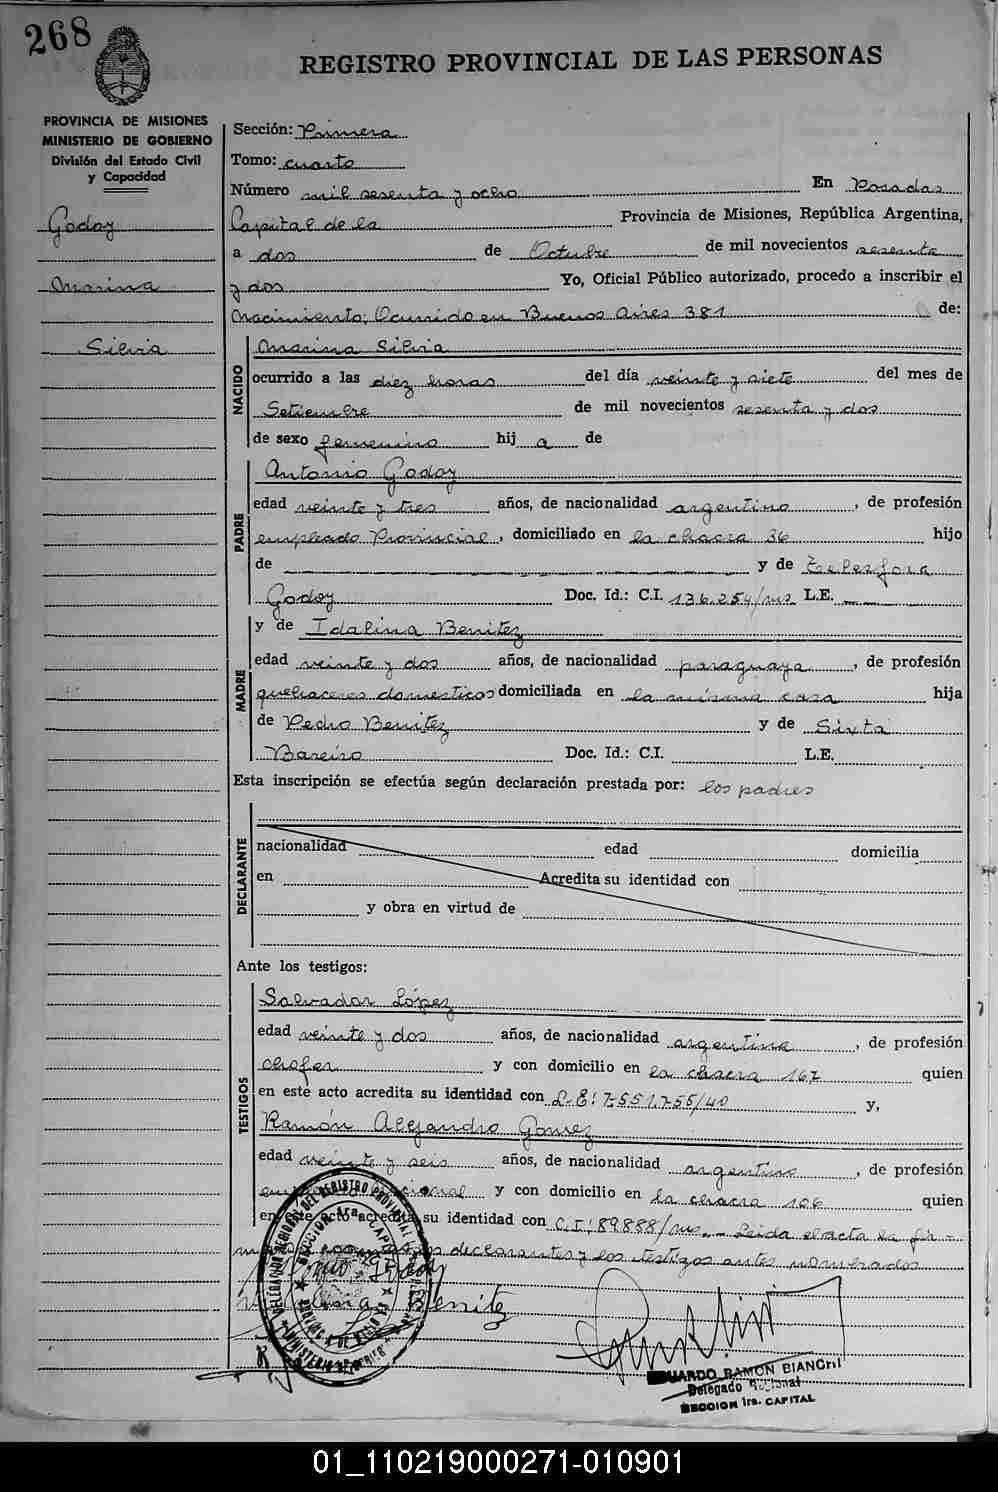 268
REGISTRO PROVINCIAL DE LAS PERSONAS
PROVINCIA DE MISIONES
MINISTERIO DE GOBIERNO
División del Estado Civil
y Capacidad
Godoy
Marina
Silvia
Sección: Primera
Tomo: cuarto
Número mil sesenta y ocho En Posadas
Capital de la Provincia de Misiones, República Argentina,
a dos de Octubre de mil novecientos sesenta
y dos Yo, Oficial Público autorizado, procedo a inscribir el
Nacimiento, Ocurrido en Buenos Aires 381 de:
NACIDO
Marina Silvia
ocurrido a las diez horas del día veinte y siete del mes de
Setiembre de mil novecientos sesenta y dos
de sexo femenino hij a de
PADRE
Antonio Godoy
edad veinte y tres años, de nacionalidad argentino, de profesión
empleado Provincial, domiciliado en la chacra 36 hijo
de y de Telesfora
Godoy Doc. Id.: C.I. 136.254/ms L.E.
MADRE
y de Idalina Benitez
edad veinte y dos años, de nacionalidad paraguaya, de profesión
quehaceres domesticos domiciliada en la misma casa hija
de Pedro Benitez y de Sixta
Bareiro Doc. Id.: C.I. L.E.
Esta inscripción se efectúa según declaración prestada por: los padres
DECLARANTE
nacionalidad edad domicilia
en Acredita su identidad con
y obra en virtud de
Ante los testigos:
TESTIGOS
Salvador López
edad veinte y dos años, de nacionalidad argentina, de profesión
chofer y con domicilio en la chacra 167 quien
en este acto acredita su identidad con L.E: 7.551.755/40 y,
Ramón Alejandro Gomez
edad veinte y seis años, de nacionalidad argentino, de profesión
y con domicilio en la chacra 106 quien
en este acto acredita su identidad con C.I: 89888/ms.- Leida el acta la fir-
declarantes y los testigos antes nombrados
Godoy
Benitez
DELEGACION REGIONAL DEL REGISTRO PROVINCIAL
SECCION 1ra. CAPITAL
PROVINCIA DE MISIONES
MINISTERIO DE
EDUARDO RAMON BIANCHI
Delegado Regional
SECCION 1ra. CAPITAL
01_110219000271-010901